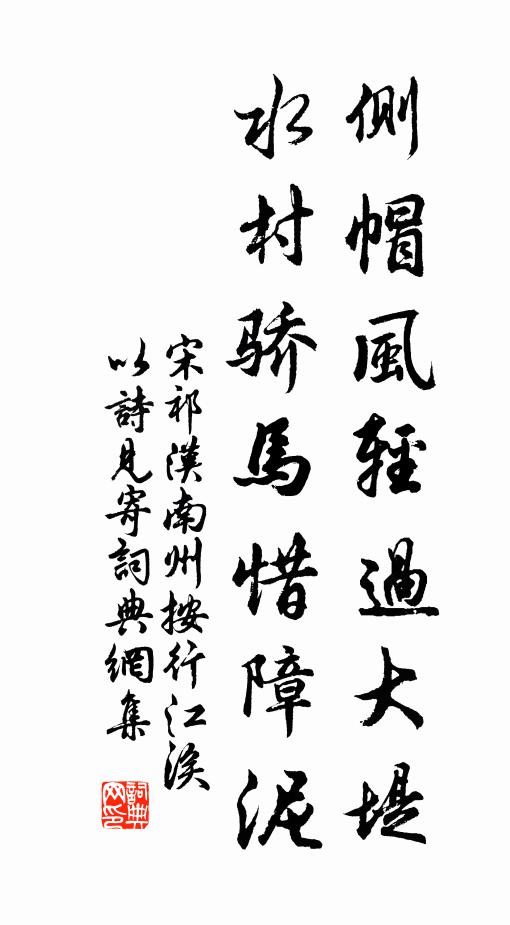 側帽風輕過大堤
水村骄馬惜障泥
宋祁漢南州按行江涘
以詩見寄詞典網集
詞典
网印